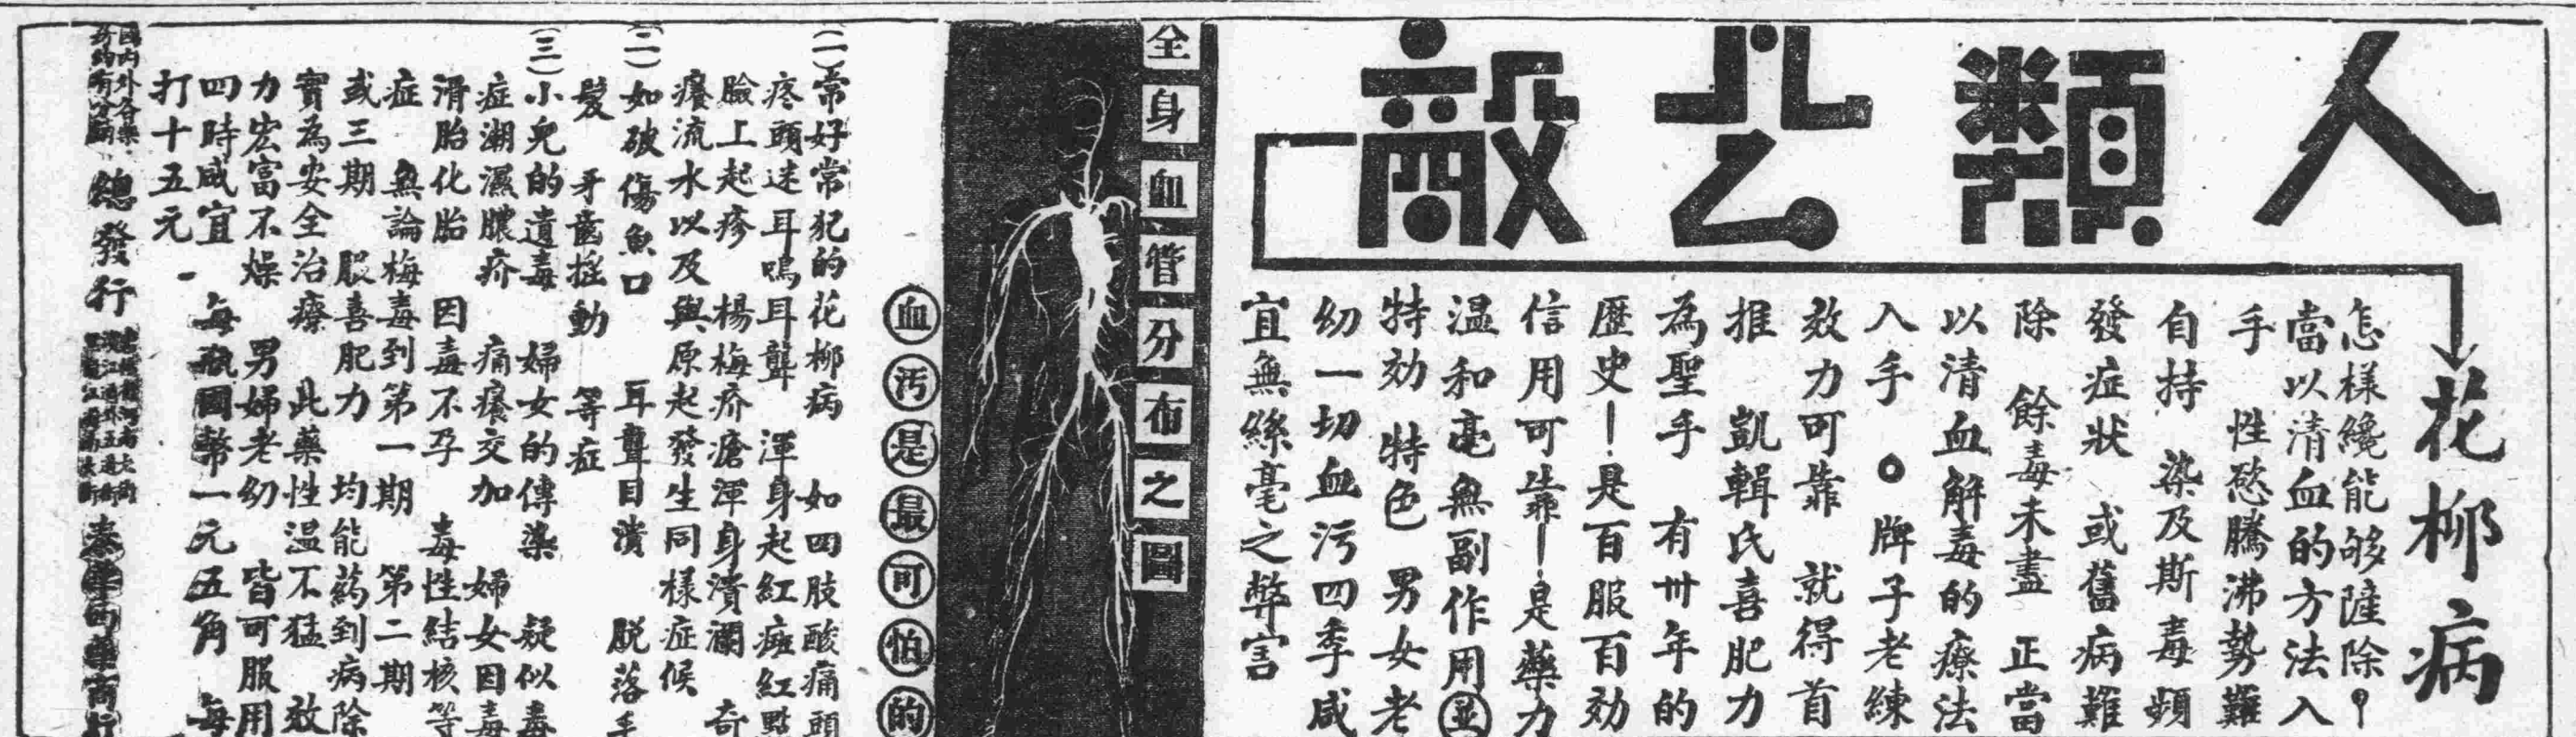 人類公敵
花柳病
怎樣纔能够薩除?
當以清血的方法入
手 性慾騰沸勢難
自持 染及斯毒頻
發症狀 或舊病難
除 餘毒未盡 正當
以清血解毒的療法
入手。牌子老練
效力可靠 就得首
推 凱輯氏喜肥力
為聖手 有卅年的
歷史—是百服百効
信用可靠—是藥力
温和毫無副作用並
特効特色 男女老
幼一切血污四季咸
宜無絲毫之弊害
全身血管分布之圖
血污是最可怕的
(一)常好常犯的花柳病 如四肢酸痛頭
疼頭迷耳鳴耳聾 渾身起紅斑紅點
臉上起疹 楊梅疥瘡渾身潰瀾 奇
癢流水以及與原起發生同樣症候
(二)如破傷魚口 耳聾目潰 脱落毛
髮 牙齒摇動 等症
(三)小兒的遺毒 婦女的傳染 疑似毒
症潮濕膿疥 痛癢交加 婦女因毒
滑胎化胎 因毒不孕 毒性結核等
症 無論梅毒到第一期 第二期
或三期 服喜肥力 均能药到病除
實為安全治療 此藥性温不猛 效
力宏富不燥 男婦老幼 皆可服用
四時咸宜 每瓶國幣一元五角 每
打十五元
國内外各藥
房均有分銷
總發行
泰華西藥商行